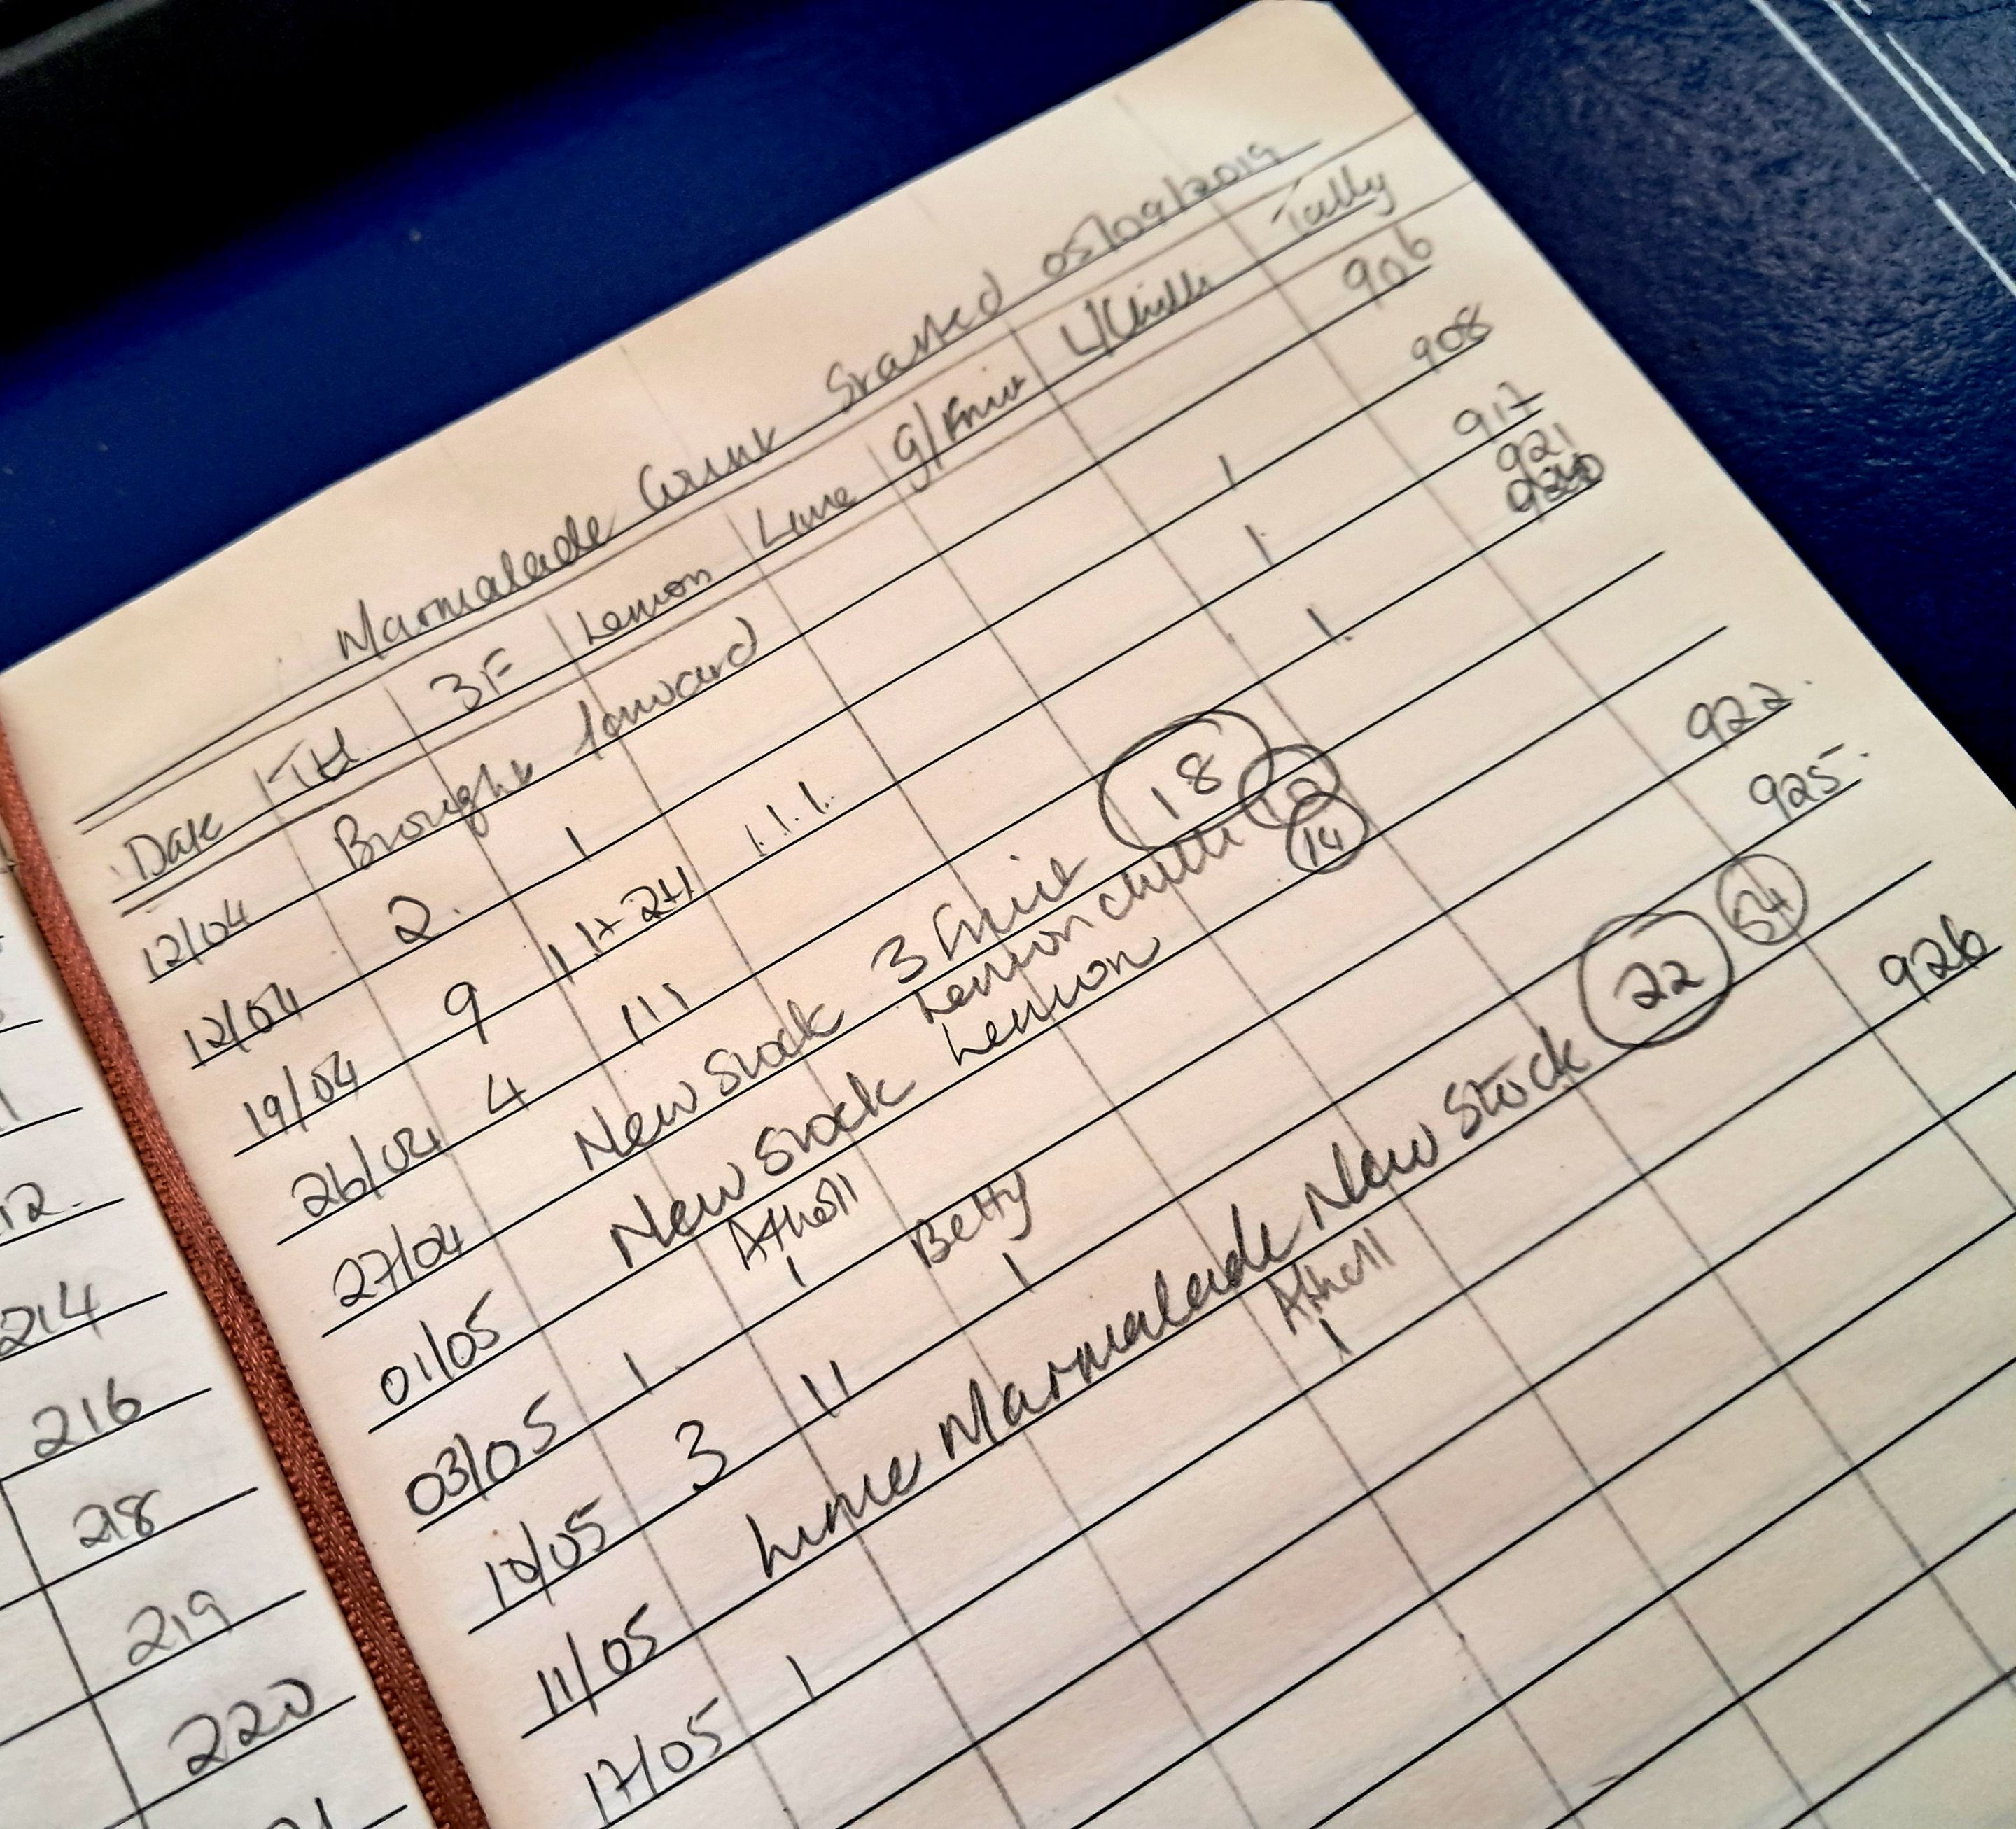 Marmalade Count Started 05/09/2019
Date Ttl 3F Lemon Lime g/Fruit L/Chilli Tally
12/04 Brought forward 906
12/04 2. 1 1 908
19/04 9 1 1 1 1 1 1 917
26/04 4 1 1 1 1 921
27/04 New Stock 3 Fruit 18
Lemon Chilli
01/05 New Stock Lemon 14
Atholl Betty
03/05 1. 1 922.
10/05 3 11 1 925.
11/05 Lime Marmalade New Stock 22 54
Atholl
17/05 1 1 926
12.
214
216
218
219
220